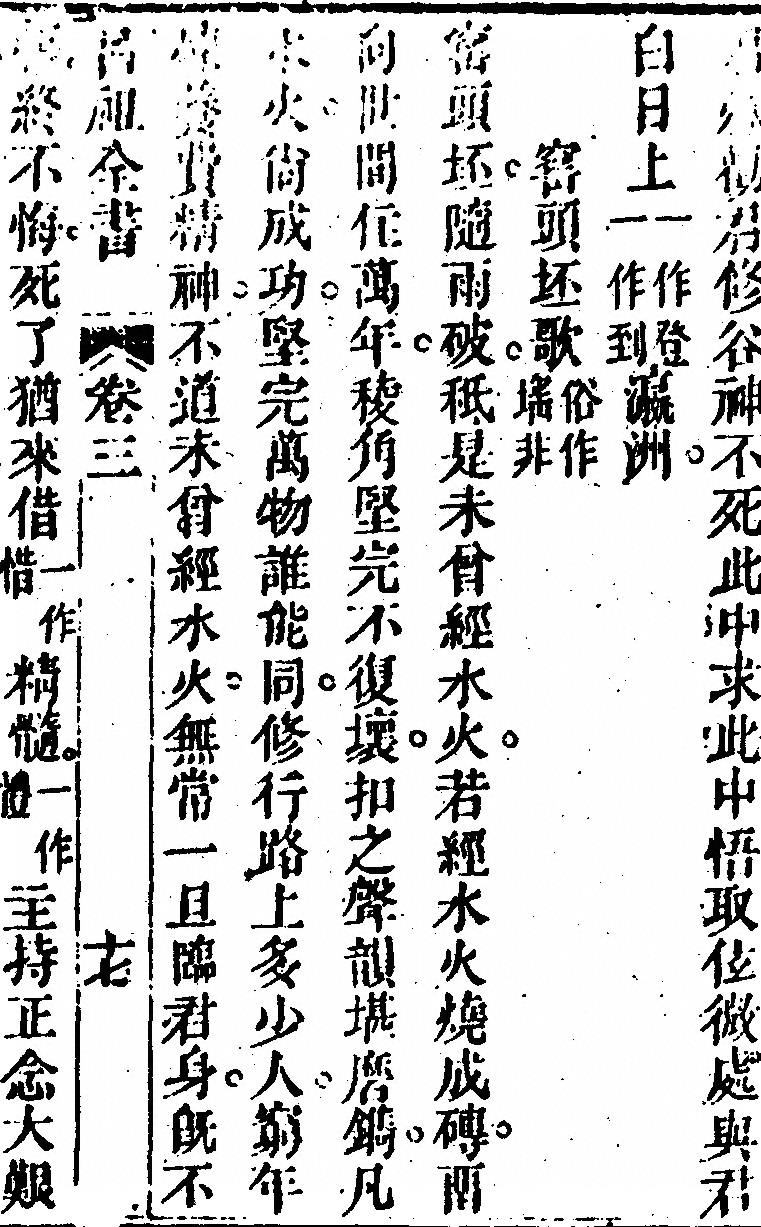 勸君修谷神不死此中求此中悟取玄微處與君
白日上一作登一作到瀛洲
窰頭坯歌俗作瑤非
窰頭坯隨雨破秪是未曾經水火若經水火燒成磚
向世間住萬年稜角堅完不復壞扣之聲韻堪磨鐫凡
水火尚成功堅完萬物誰能同修行路上多少人窮年
費精神不道未曾經水火無常一旦臨君身既不
呂祖全書 卷三
終不悔死了猶來借一作惜精髓一作主持正念大艱